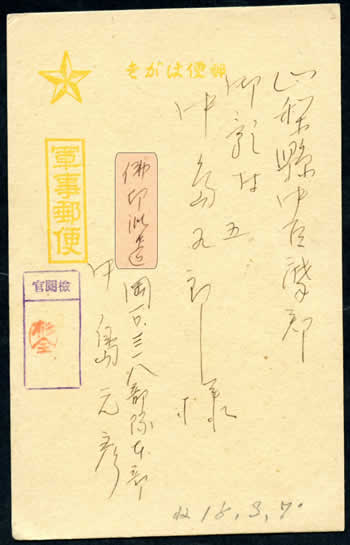 郵便はがき
山梨縣中巨摩郡
御影村五
中島 郎様
佛印派遣
岡一〇三一八部隊本部
中島元彦
軍事郵便
檢閲官
杉全
18.3.7.